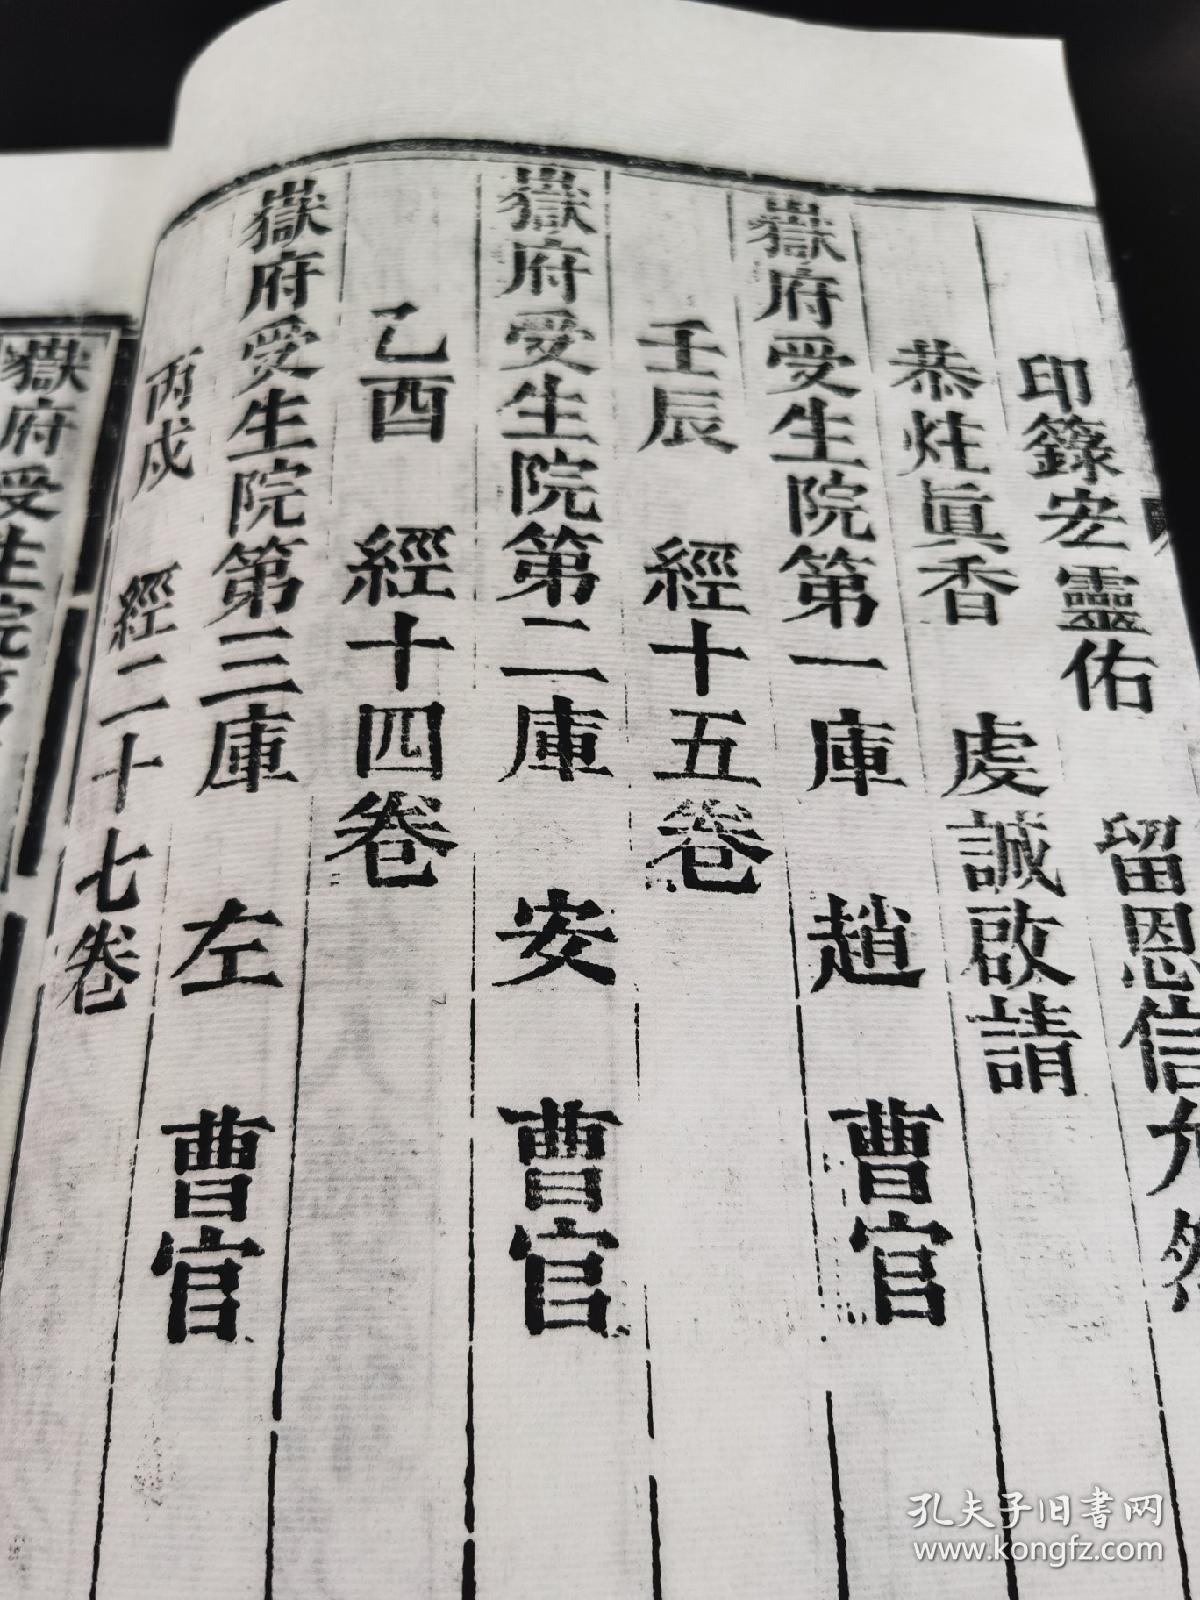 留恩信允
印籙宏靈佑
恭炷眞香　虔誠啟請
嶽府受生院第一庫　趙　曹官
壬辰　經十五卷
嶽府受生院第二庫　安　曹官
乙酉　經十四卷
嶽府受生院第三庫　左　曹官
丙戌　經二十七卷
嶽府受生院
孔夫子旧书网
www.kongfz.com